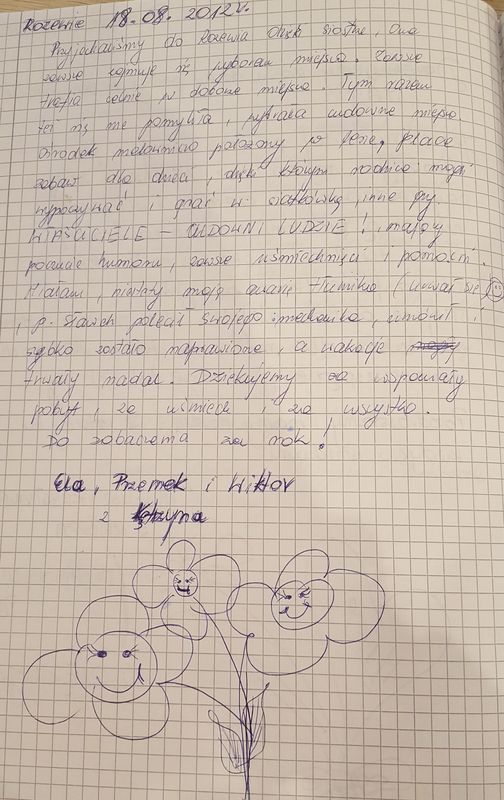 Rozewie 18.08.2012 r.
Przyjechaliśmy do Rozewia dzięki siostrze, Ona
zawsze zajmuje się wyborem miejsca. Zawsze
trafia celnie w dobre miejsca. Tym razem
też się nie pomyliła, wybrała cudowne miejsce
Ośrodek malowniczo położony w lesie, place
zabaw dla dzieci, dzięki którym rodzice mogą
wypoczywać i grać w siatkówkę, inne gry.
WŁAŚCICIELE – CUDOWNI LUDZIE! mający
poczucie humoru, zawsze uśmiechnięci i pomocni.
Miałam, niestety moją awarię tłumika (urwał się ☺)
, p. Sławek polecił swojego mechanika, umówił i
szybko zostało naprawione, a wakacje
trwały nadal. Dziękujemy za wspaniały
pobyt, za uśmiech i za wszystko.
Do zobaczenia za rok!
Ela, Przemek i Wiktor
z